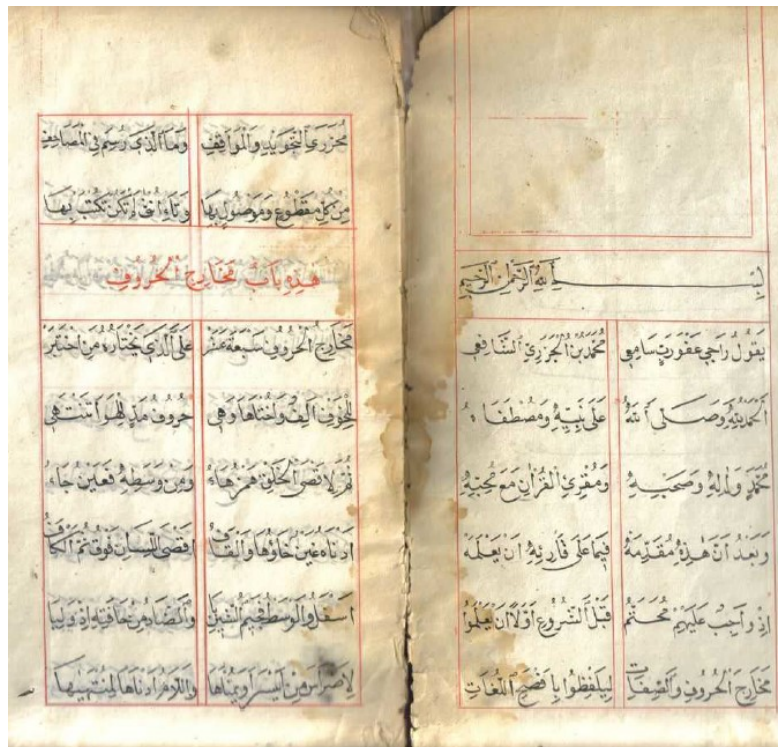 بِسْمِ اللهِ الرَّحْمٰنِ الرَّحِيمِ
يَقُولُ رَاجِي عَفْوِ رَبٍّ سَامِعِ مُحَمَّدُ بْنُ الْجَزَرِيِّ الشَّافِعِي
اَلْحَمْدُ لِلّٰهِ وَصَلَّى اللهُ عَلَى نَبِيِّهِ وَمُصْطَفَاهُ
مُحَمَّدٍ وَاٰلِهِ وَصَحْبِهِ وَمُقْرِئِ الْقُرْاٰنِ مَعْ مُحِبِّهِ
وَبَعْدُ اَنَّ هٰذِهِ مُقَدِّمَهْ فِيمَا عَلَى قَارِئِهِ اَنْ يَعْلَمَهْ
اِذْ وَاجِبٌ عَلَيْهِمُ مُحَتَّمُ قَبْلَ الشُّرُوعِ اَوَّلًا اَنْ يَعْلَمُوا
مَخَارِجَ الْحُرُوفِ وَالصِّفَاتِ لِيَلْفِظُوا بِاَفْصَحِ اللُّغَاتِ
مُحَرِّرِي التَّجْوِيدِ وَالْمَوَاقِفِ وَمَا الَّذِي رُسِمَ فِي الْمَصَاحِفِ
مِنْ كُلِّ مَقْطُوعٍ وَمَوْصُولٍ بِهَا وَتَاءِ اُنْثَى لَمْ تَكُنْ تُكْتَبْ بِهَا
هٰذِهِ بَابُ مَخَارِجِ الْحُرُوفِ
مَخَارِجُ الْحُرُوفِ سَبْعَةَ عَشَرْ عَلَى الَّذِي يَخْتَارُهُ مَنِ اخْتَبَرْ
لِلْجَوْفِ اَلِفٌ وَاُخْتَاهَا وَهِي حُرُوفُ مَدٍّ لِلْهَوَاءِ تَنْتَهِي
ثُمَّ لِاَقْصَى الْحَلْقِ هَمْزٌ هَاءُ وَمِنْ وَسَطِهِ فَعَيْنٌ حَاءُ
اَدْنَاهُ غَيْنٌ خَاؤُهَا وَالْقَافُ اَقْصَى اللِّسَانِ فَوْقُ ثُمَّ الْكَافُ
اَسْفَلُ وَالْوَسَطُ فَجِيمُ الشِّينُ يَا وَالضَّادُ مِنْ حَافَتِهِ اِذْ وَلِيَا
لِاَضْرَاسَ مِنْ اَيْسَرَ اَوْ يُمْنَاهَا وَاللَّامُ اَدْنَاهَا لِمُنْتَهَيهَا